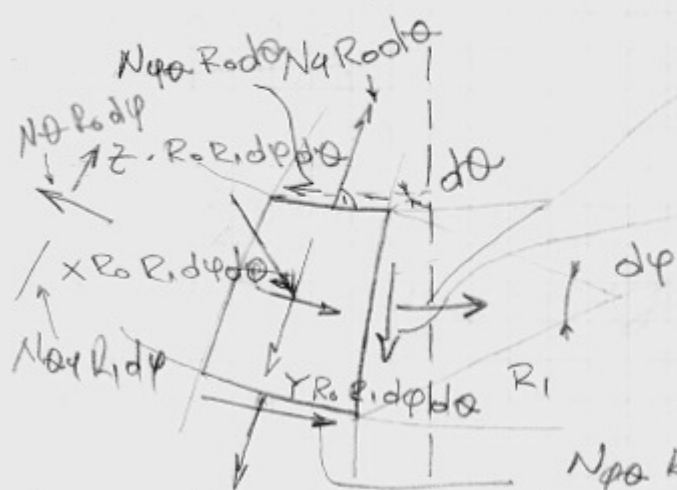 Nφθ R₀dθ Nφ R₀dθ
Nθ R₀dφ
Z · R₀ R₁ dφ dθ
dθ
X R₀ R₁ dφ dθ
dφ
Nθφ R₁ dφ
Y R₀ R₁ dφ dθ
R₁
Nφθ R